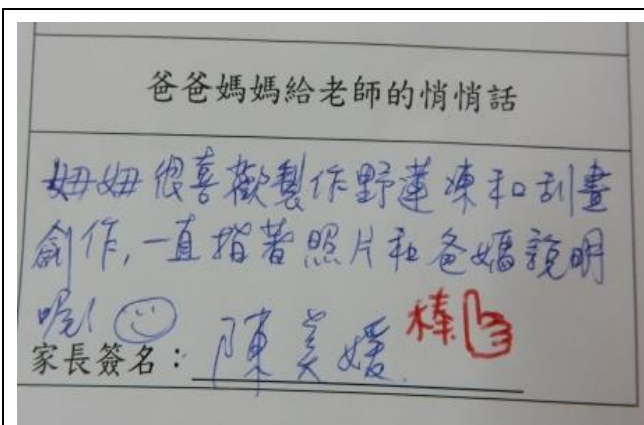 爸爸媽媽給老師的悄悄話
妞妞很喜歡製作野蓮凍和刮畫
創作,一直指著照片和爸媽說明
呢!
棒
家長簽名：陳美媛